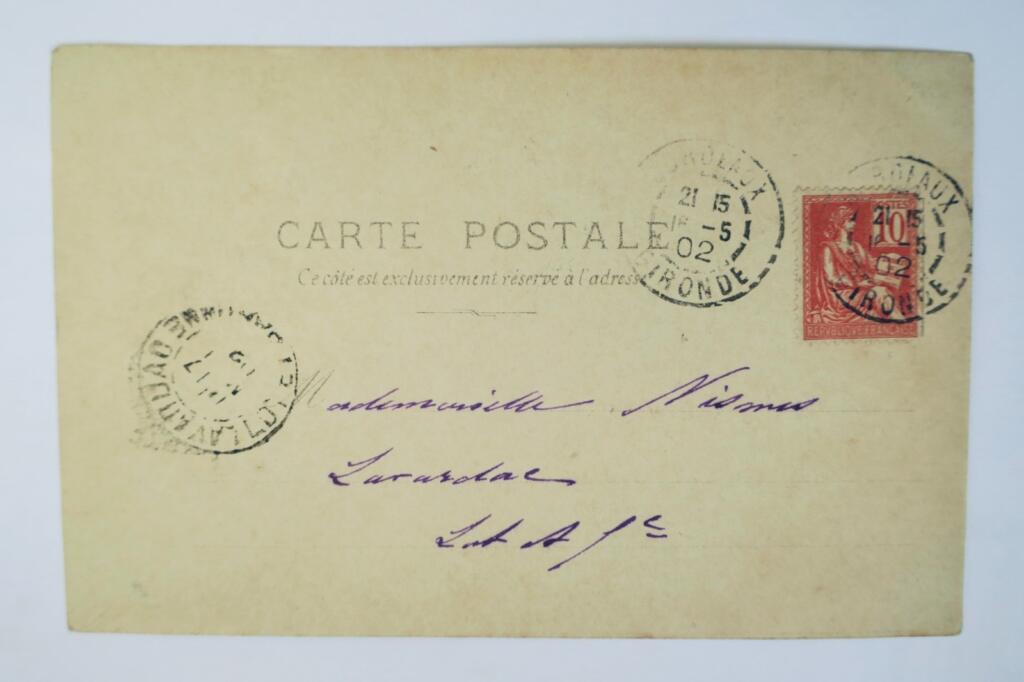 CARTE POSTALE
Ce côté est exclusivement réservé à l'adresse
BORDEAUX
21 15
-5
02
GIRONDE
BORDEAUX
21 15
-5
02
GIRONDE
10
REPUBLIQUE FRANÇAISE
LAVARDAC
LOT
Mademoiselle Nismes
Lavardac
Lot et Gne